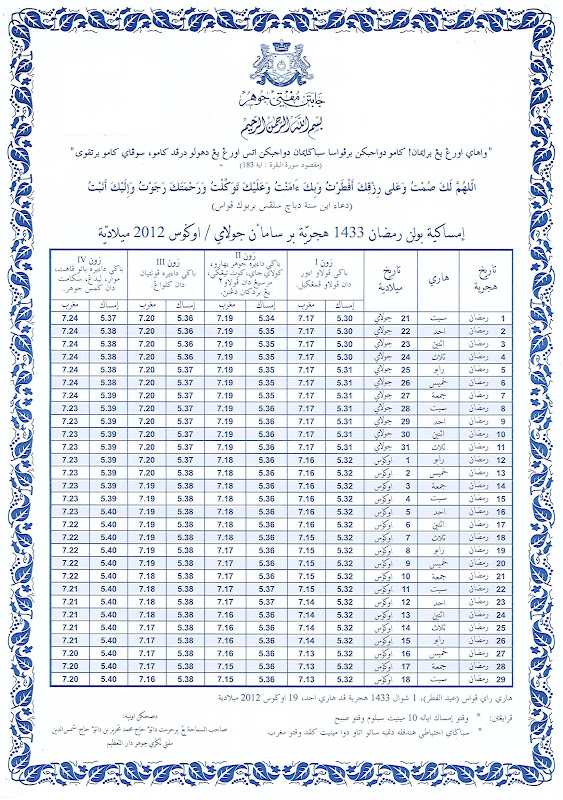 جابتن مفتي جوهر
بسم الله الرحمن الرحيم
"واهاي اورڠ يڠ برايمان! كامو دواجبكن برڤواسا سباݢايمان دواجبكن اتس اورڠ يڠ دهولو درڤد كامو، سوڤاي كامو برتقوى"
(مقصود سورة البقرة : اية 183)
اللهم لك صمت وعلى رزقك أفطرت وبك ءامنت وعليك توكلت ورحمتك رجوت وإليك أنبت
(دعاء اين سنة دباچ سلڤس بربوك ڤواس)
امساكية بولن رمضان 1433 هجرية برسامأن جولاي / اوݢوس 2012 ميلادية
تاريخ هجرية | هاري | تاريخ ميلادية | زون I | زون II | زون III | زون IV
امساك | مغرب | امساك | مغرب | امساك | مغرب | امساك | مغرب
1 رمضان | سبت | 21 جولاي | 5.30 | 7.17 | 5.34 | 7.19 | 5.36 | 7.20 | 5.37 | 7.24
2 رمضان | احد | 22 جولاي | 5.30 | 7.17 | 5.35 | 7.19 | 5.36 | 7.20 | 5.38 | 7.24
3 رمضان | اثنين | 23 جولاي | 5.30 | 7.17 | 5.35 | 7.19 | 5.36 | 7.20 | 5.38 | 7.24
4 رمضان | ثلاث | 24 جولاي | 5.30 | 7.17 | 5.35 | 7.19 | 5.36 | 7.20 | 5.38 | 7.24
5 رمضان | رابو | 25 جولاي | 5.31 | 7.17 | 5.35 | 7.19 | 5.37 | 7.20 | 5.38 | 7.24
6 رمضان | خميس | 26 جولاي | 5.31 | 7.17 | 5.35 | 7.19 | 5.37 | 7.20 | 5.38 | 7.24
7 رمضان | جمعة | 27 جولاي | 5.31 | 7.17 | 5.35 | 7.19 | 5.37 | 7.20 | 5.39 | 7.24
8 رمضان | سبت | 28 جولاي | 5.31 | 7.17 | 5.36 | 7.19 | 5.37 | 7.20 | 5.39 | 7.23
9 رمضان | احد | 29 جولاي | 5.31 | 7.17 | 5.36 | 7.19 | 5.37 | 7.20 | 5.39 | 7.23
10 رمضان | اثنين | 30 جولاي | 5.31 | 7.17 | 5.36 | 7.19 | 5.37 | 7.20 | 5.39 | 7.23
11 رمضان | ثلاث | 31 جولاي | 5.31 | 7.17 | 5.36 | 7.19 | 5.37 | 7.20 | 5.39 | 7.23
12 رمضان | رابو | 1 اوݢوس | 5.32 | 7.16 | 5.36 | 7.18 | 5.37 | 7.20 | 5.39 | 7.23
13 رمضان | خميس | 2 اوݢوس | 5.32 | 7.16 | 5.36 | 7.18 | 5.38 | 7.19 | 5.39 | 7.23
14 رمضان | جمعة | 3 اوݢوس | 5.32 | 7.16 | 5.36 | 7.18 | 5.38 | 7.19 | 5.39 | 7.23
15 رمضان | سبت | 4 اوݢوس | 5.32 | 7.16 | 5.36 | 7.18 | 5.38 | 7.19 | 5.39 | 7.23
16 رمضان | احد | 5 اوݢوس | 5.32 | 7.16 | 5.36 | 7.18 | 5.38 | 7.19 | 5.40 | 7.23
17 رمضان | اثنين | 6 اوݢوس | 5.32 | 7.15 | 5.36 | 7.18 | 5.38 | 7.19 | 5.40 | 7.22
18 رمضان | ثلاث | 7 اوݢوس | 5.32 | 7.15 | 5.36 | 7.18 | 5.38 | 7.19 | 5.40 | 7.22
19 رمضان | رابو | 8 اوݢوس | 5.32 | 7.15 | 5.36 | 7.17 | 5.38 | 7.19 | 5.40 | 7.22
20 رمضان | خميس | 9 اوݢوس | 5.32 | 7.15 | 5.36 | 7.17 | 5.38 | 7.19 | 5.40 | 7.22
21 رمضان | جمعة | 10 اوݢوس | 5.32 | 7.15 | 5.36 | 7.17 | 5.38 | 7.18 | 5.40 | 7.22
22 رمضان | سبت | 11 اوݢوس | 5.32 | 7.15 | 5.37 | 7.17 | 5.38 | 7.18 | 5.40 | 7.21
23 رمضان | احد | 12 اوݢوس | 5.32 | 7.14 | 5.37 | 7.17 | 5.38 | 7.18 | 5.40 | 7.21
24 رمضان | اثنين | 13 اوݢوس | 5.32 | 7.14 | 5.36 | 7.16 | 5.38 | 7.18 | 5.40 | 7.21
25 رمضان | ثلاث | 14 اوݢوس | 5.32 | 7.14 | 5.36 | 7.16 | 5.38 | 7.17 | 5.40 | 7.21
26 رمضان | رابو | 15 اوݢوس | 5.32 | 7.14 | 5.36 | 7.16 | 5.38 | 7.17 | 5.40 | 7.21
27 رمضان | خميس | 16 اوݢوس | 5.32 | 7.13 | 5.36 | 7.16 | 5.38 | 7.17 | 5.40 | 7.20
28 رمضان | جمعة | 17 اوݢوس | 5.32 | 7.13 | 5.36 | 7.15 | 5.38 | 7.17 | 5.40 | 7.20
29 رمضان | سبت | 18 اوݢوس | 5.32 | 7.13 | 5.36 | 7.15 | 5.38 | 7.16 | 5.40 | 7.20
هاري راي ڤواس (عيد الفطر)، 1 شوال 1433 هجرية ڤد هاري احد، 19 اوݢوس 2012 ميلادية
ڤرايڠتن: * وقتو امساك اياله 10 مينيت سبلوم وقتو صبح
* سباݢاي احتياطي هندقله دتمبه ساتو اتاو دوا مينيت كڤد وقتو مغرب
دصحكن اوليه:
مفتي نݢري جوهر دار التعظيم